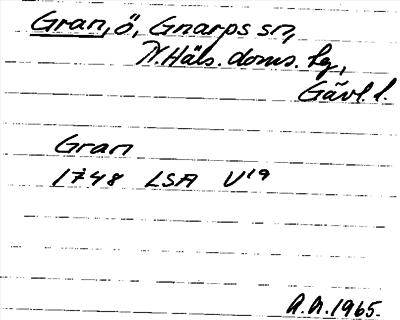 Gran, ö, Gnarps sn,
N. Häls. doms. hg,
Gävl. l.
Gran
1748 LSA V19
A.A. 1965.